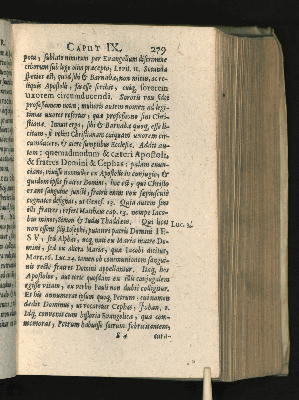 CAPUT IX. 279
pota, sublato nimirum per Evangelium discrimine
ciborum sub lege olim præcepto, Levit. 11. Secunda
species est, quod sibi & Barnabæ, non minus, ac re-
liquis Apostolis, jus esse scribat, cuiq, sororem
uxorem circumducendi. Sororis vox fidei
professionem notat; mulieris autem nomen ad legi-
timas uxores refertur, quæ professione sint Chri-
stianæ. Innuit ergo, sibi & Barnabæ quoq, esse li-
citum, si velint Christianam cuiquam uxorem cir-
cumducere, & alere sumptibus Ecclesiæ. Addit au-
tem: quemadmodum & cæteri Apostoli,
& fratres Domini & Cephas: palam enun-
cians, vixisse nonnullos ex Apostolis in conjugio, &
quidem ipsos fratres Domini, hoc est, qui Christo
erant sanguine juncti, fratris enim vox
cognatos designat, ut Genes. 13. Quia autem sint
isti fratres, refert Matthæus cap. 13. nempe Jaco-
bus minor, Simon & Judas Thaddæus. Qui licet
non essent filii Josephi, putativi patris Domini JE-
SU, sed Alphæi, neq, nati ex Maria matre Do-
mini, sed ex altera Maria, quæ Jacobi dicitur,
Marc. 16. Luc. 24. tamen ob communitatem sangui-
nis recte fratres Domini appellantur. Hosq, hos
Apostolos, aut certe quosdam ex illis conjugium
egisse vitam, ex verbis Pauli non dubie colligitur.
Et his annumerat ipsum quoq, Petrum, cui nomen
dedit Dominus, ut vocaretur Cephas, Johan. 1.
Idq, convenit cum historia Evangelica, quæ com-
memorat, Petrum habuisse socrum febricitantem,
S 4
Luc. 3.